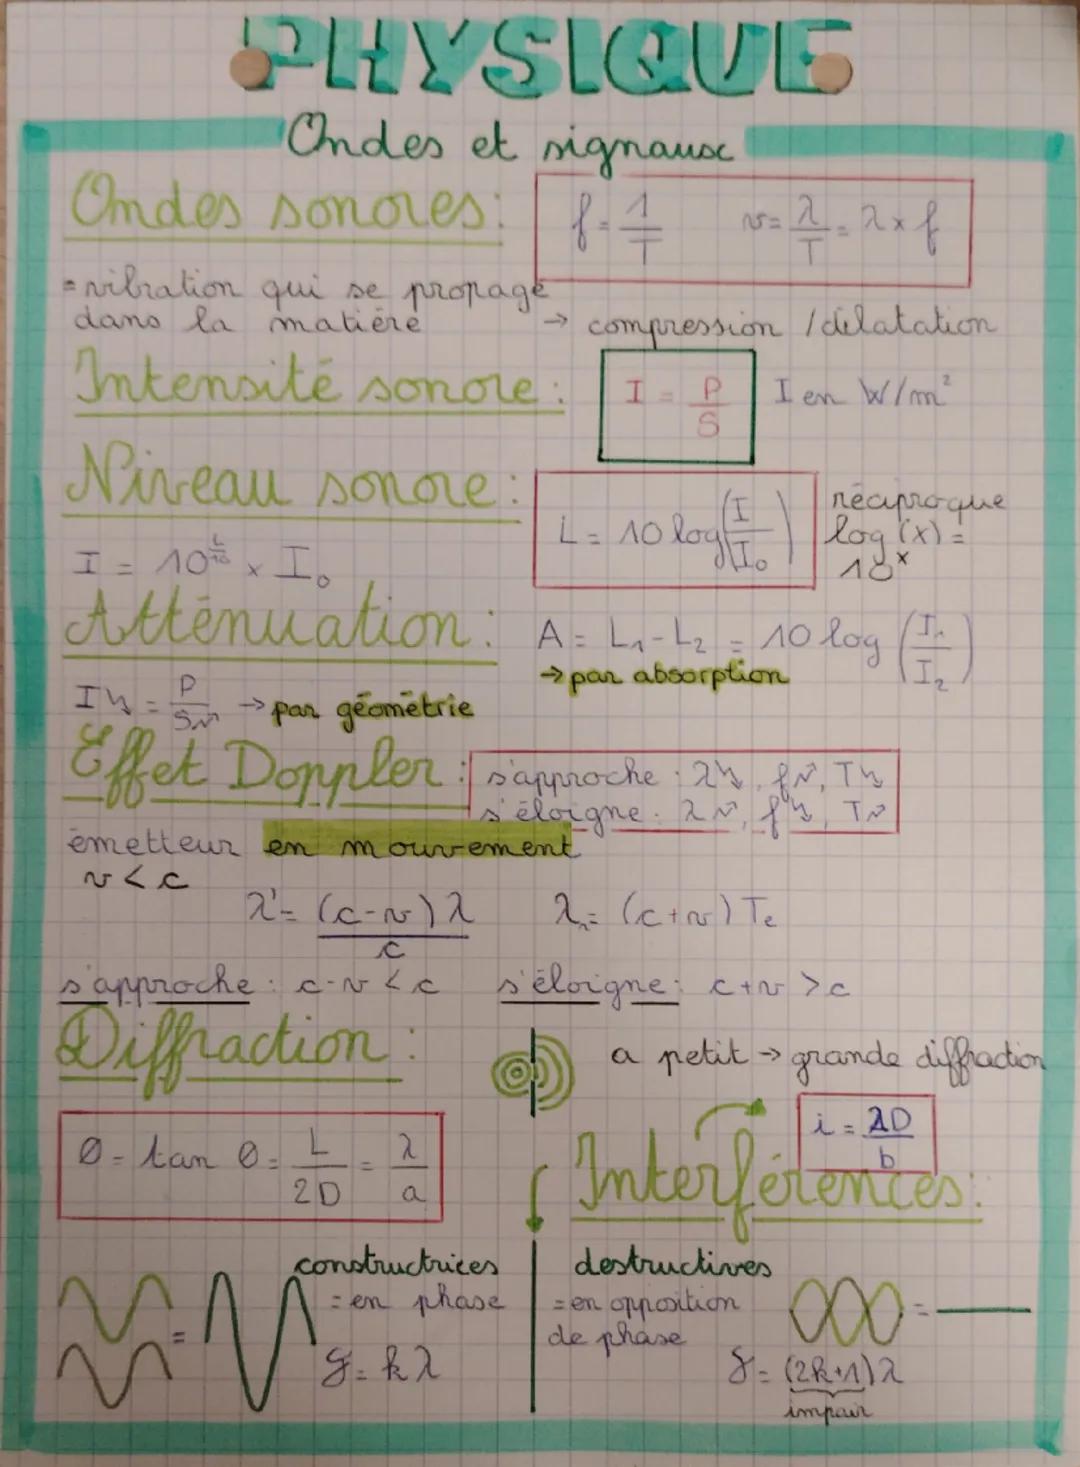 PHYSIQUE
Ondes et signaux
Ondes sonores :
f = 1/T   v = λ/T = λ × f
= vibration qui se propage
dans la matière
→ compression / dilatation
Intensité sonore :
I = P/S
I en W/m²
Niveau sonore :
L = 10 log(I/I₀)
réciproque
log (x) =
10ˣ
I = 10^(L/10) × I₀
Atténuation :
A = L₁ - L₂ = 10 log (I₁/I₂)
→ par absorption
I↘ = P/S↗ → par géométrie
Effet Doppler :
s'approche : λ↘, f↗, T↘
s'éloigne : λ↗, f↘, T↗
émetteur en mouvement
v < c
λ' = (c-v)λ/c   λ = (c+v) Te
s'approche : c-v < c   s'éloigne : c+v > c
Diffraction :
a petit → grande diffraction
θ = tan θ = L/2D = λ/a
i = λD/b
Interférences :
constructrices
= en phase
δ = kλ
destructives
= en opposition
de phase
δ = (2k+1)λ
impair